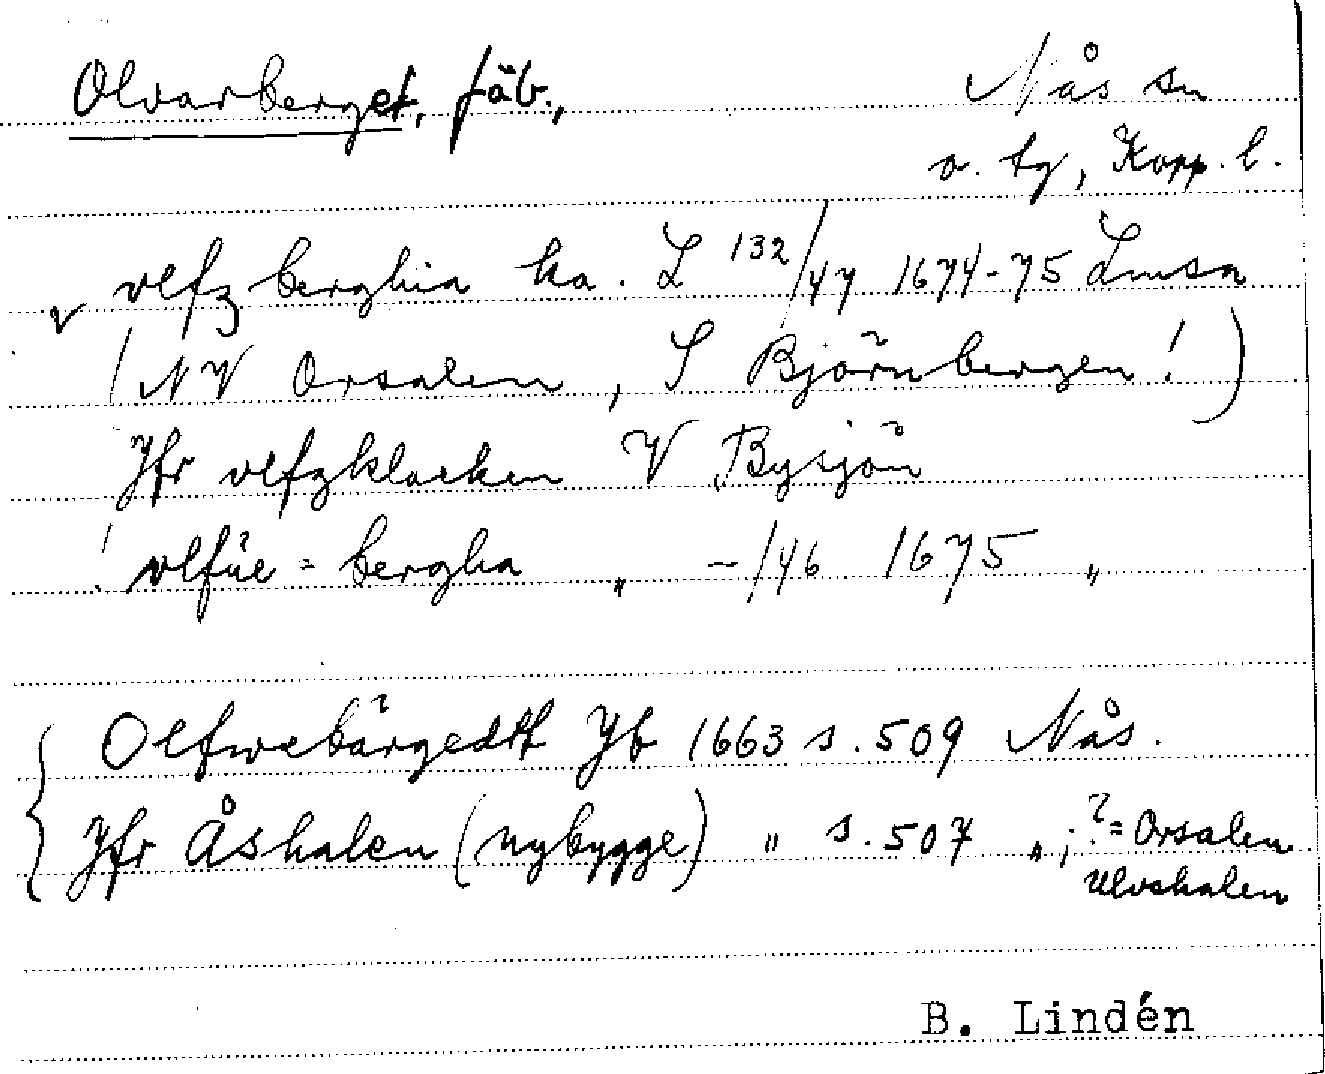 Olvarberget, fäb., Nås sn
o. tg, Kopp. l.
v vlfz berghia ka. L 132/47 1674-75 Lmsa
(NV Orsalen, S Björnbergen!)
Jfr vlfzklacken V Bysjön
! vlfüe = bergha „ -/46 1675 „
Olfwebärgedtt Jb 1663 s. 509 Nås.
Jfr Åshalen (nybygge) „ s. 507 „; ?= Orsalen
Ulvshalen
B. Lindén